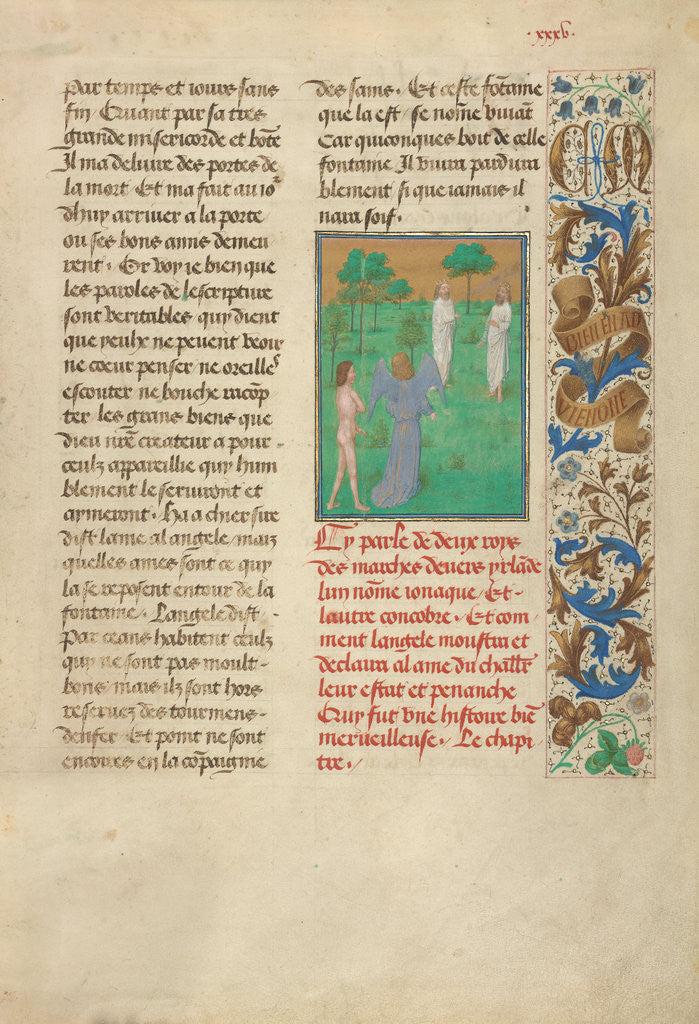 .xxxv.
par temps et iours sans
fin / Cryant par sa tres
grande misericorde et bōte
Il ma deliure des portes de
la mort Et ma fait au io²
dhuy arriuer a la porte
ou ses bons amis demeu
rent . Or voy ie bien que
les paroles de lescripture
sont veritables quy dient
que yeulx ne peuent veoir
ne coeur penser / ne oreilles
escouter ne bouche racōp
ter / les grans biens que
dieu nr̄e createur a pour
ceulz appareillie quy hum
blement le seruiront et
aymeront . Ha a chier sire
dist lame al angele / maiz
quelles ames sont ce quy
la se reposent entour de la
fontaine / Langele dist .
Par ceans habitent ceulz
quy ne sont pas moult -
bons / mais ilz sont hors
reseruez des tourmens -
denfer / Et point ne sont
encores en la cōpaignie
des sains . Et ceste fōtaine
que la est / se nōme viuāt
Car quiconques boit de celle
fontaine Il viura pardura
blement si que iamais il
naura soif .
Cy parle de deux roys
des marches deuers yrlāde
lun nōme ionaque / Et -
lautre concobre . Et com
ment langele moustra et
declaira al ame du challr̄
leur estat et penanche
Quy fut vne histoire biē
merueilleuse . Le chapi
tre . /
CM
BIEN EN AD
VIENGNE